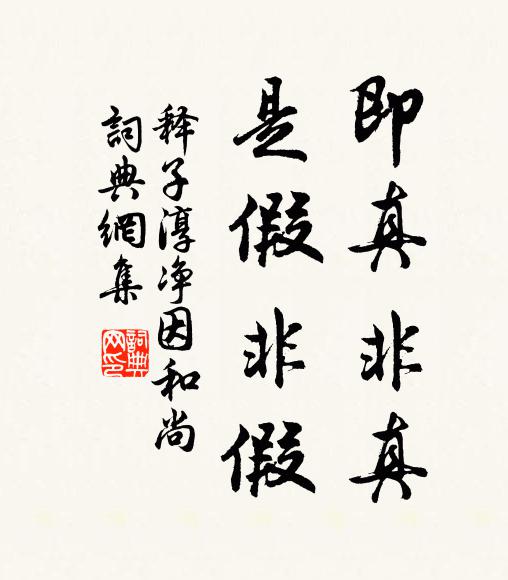 即真非真
是假非假
释子淳净因和尚
詞典網集
詞典网印